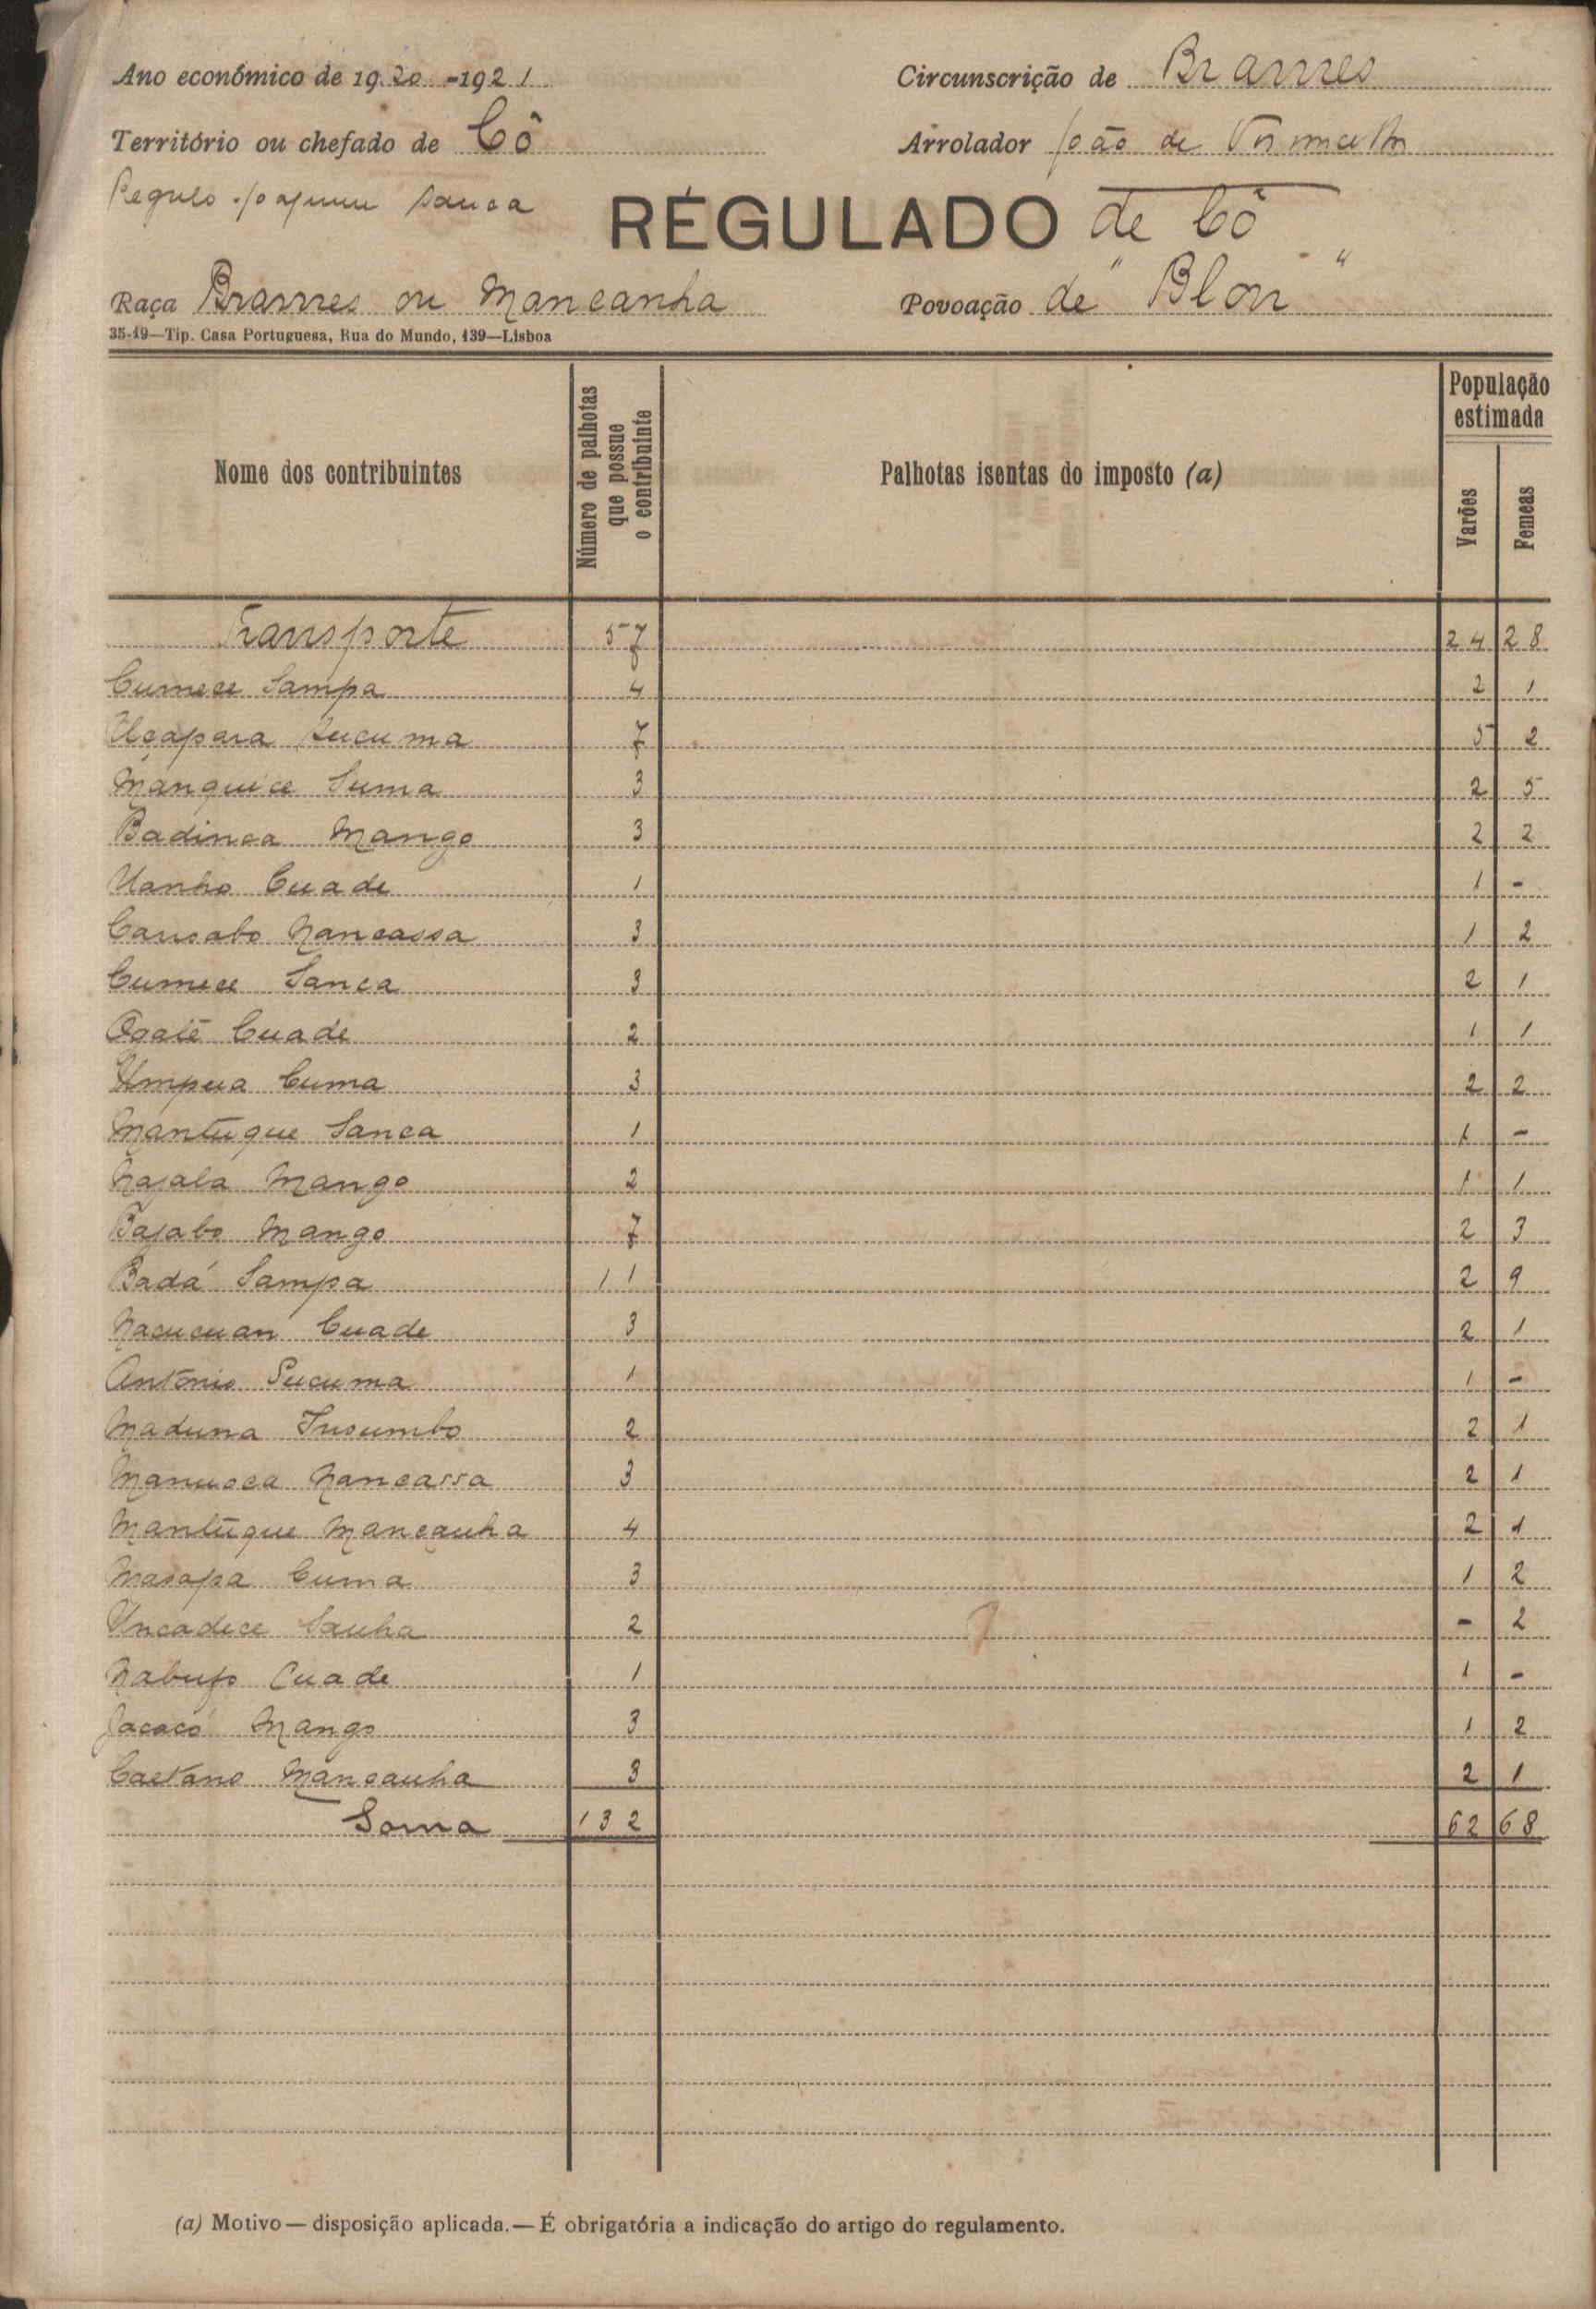 Ano económico de 1920-1921
Circunscrição de Brames
Território ou chefado de Cô
Arrolador João de
Regulo Joaquim Sanca
RÉGULADO de Cô
Raça Brames ou Mancanha
Povoação de "Blon"
35-19—Tip. Casa Portuguesa, Rua do Mundo, 139—Lisboa
Nome dos contribuintes
Número de palhotas que possue o contribuinte
Palhotas isentas do imposto (a)
População estimada
Varões
Femeas
Transporte 57 24 28
Cumece Sampa 4 2 1
Ucapara Sucuma 7 5 2
Manquice Suma 3 2 5
Badinca Mango 3 2 2
Uanho Cuade 1 1 -
Cansabo Nancassa 3 1 2
Cumece Sanca 3 2 1
Osaiê Cuade 2 1 1
Umpua Cuma 3 2 2
Mantuque Sanca 1 1 -
Najala Mango 2 1 1
Bajabo Mango 7 2 3
Badá Sampa 11 2 9
Nacucuan Cuade 3 2 1
António Sucuma 1 1 -
Maduna Insumbo 2 2 1
Manusca Nancassa 3 2 1
Mantuque Mancanha 4 2 1
Masapa Cuma 3 1 2
Uncadece Sanha 2 - 2
Nabufo Cuade 1 1 -
Jacacó Mango 3 1 2
Caetano Mancanha 3 2 1
Soma 132 62 68
(a) Motivo — disposição aplicada. — É obrigatória a indicação do artigo do regulamento.